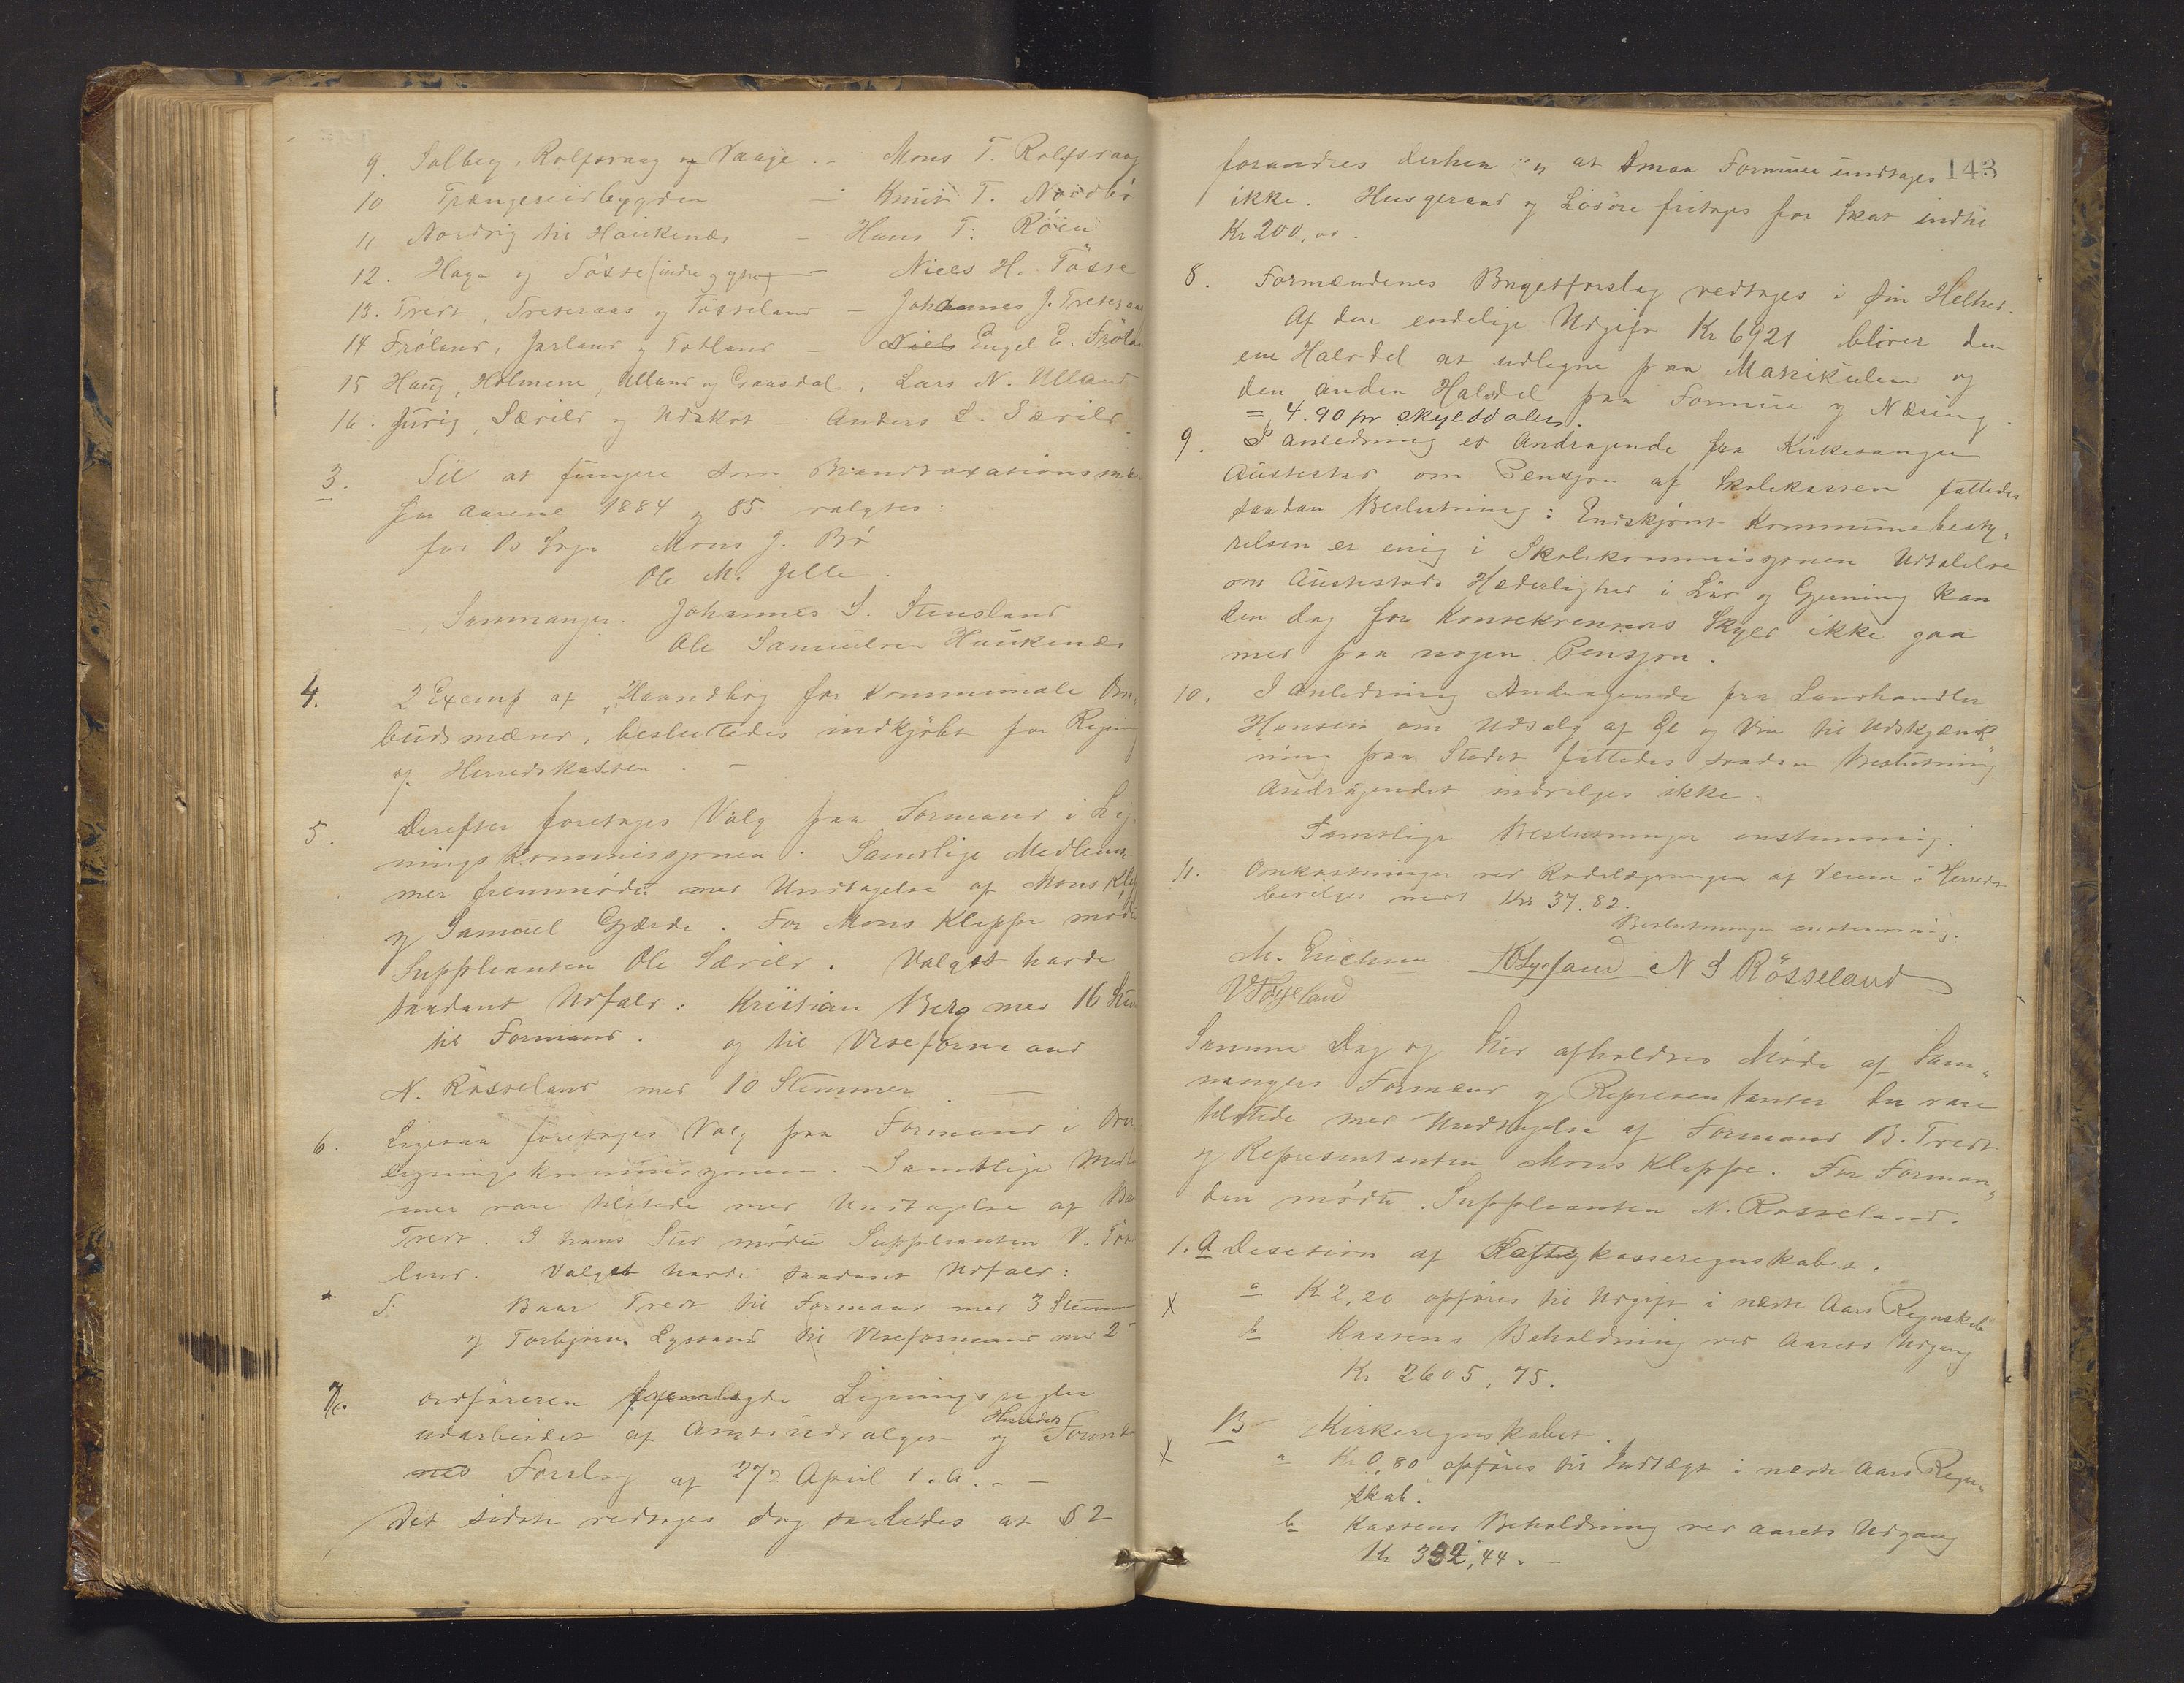 9. Solberg, Rolfsvaag og Vaage. – Mons T. Rolfsvaag
10. Trængereidbygden – Knut T. Nordbø
11 Nordvig til Haukenæs – Hans T. Röen
12. Haga og Tösse (indre og ytre) – Niels H. Tösse
13. Tredt, Treteraas og Tösseland – Johannes J. Treteraas
14 Fröland, Jarland og Totland – Niels Engel E. Fröland
15 Haug, Holmene, Ulland og Gaasdal, Lars N. Ulland
16. Jurig, Særild og Udskot – Anders L. Særild.
3. Til at fungere som Brandtaxationsmæn
for Aarene 1884 og 85 valgtes:
for Os Sogn Mons J. Bö
Ole M. Gjelle.
– Samnanger. Johannes S. Stensland
Ole Samuelsen Haukenæs
4. 2 Exemp af „Haandbog for kommunale Om-
budsmænd, besluttedes indkjöbt for Regning
af Herredskassen. –
5. Derefter foretages Valg paa Formand i Lig-
ningskommissjonen. Samtlige Medlem-
mer fremmödte med Undtagelse af Mons Kleppe
og Samuel Gjærde. For Mons Kleppe mödte
Suppleanten Ole Særild. Valget havde
saadant Udfald: Kristian Berg med 16 Stem
til Formand. og til Viseformand
N. Rösseland med 10 Stemmer. –
6. Ligesaa foretages Valg paa Formand i Over
ligningskommissjonen. Samtlige Medlem
mer vare tilstede med Undtagelse af Baar
Tredt. I hans Sted mödte Suppleanten V. Töse
land. Valget havde saadant Udfald:
S: Baar Tredt til Formand med 3 Stemmer
og Torbjörn Lyssand til Viseformand med 2 "
7. Ordföreren fremlagde Ligningsregler
udarbeidet af Amtsudvalget og Herreds Formænde
nes Forslag af 27de April d. A. –
Det sidste vedtages dog saaledes at § 2
143
forandres derhen at smaa Formuer undtages
ikke. Husgeraad og Lösöre fritages for Skat indtil
Kr 200,00.
8. Formændenes Budgetforslag vedtages i sin Helhed.
Af den endelige Udgift Kr 6921 bliver den
ene Halvdel at udlegne paa Matrikulen og
den anden Halvdel paa Formue og Næring.
= 4.90 pr skylddaler.
9. I anledning et Andragende fra Kirkesanger
Austestad om Pensjon af Skolekassen fattedes
saadan Beslutning: Endskjönt Kommunebesty-
relsen er enig i Skolekommissjonen Udtalelse
om Austestads Hæderlighed i Liv og Gjerning kan
den dog for Konsekvensens Skyld ikke gaa
med paa nogen Pensjon.
10. I Anledning Andragende fra Landhandler
Hansen om Udsalg af Öl og Vin til Udskjænk
ning paa Stedet fattedes saadan Beslutning
Andragendet indvilges ikke.
Samtlige Beslutninger enstemmig.
11. Omkostninger ved Rodelægningen af Veiene i Herredet
bevilges med Kr 37.82.
Beslutningen enstemmig.
M. Erichsen. TO Lyssand N S Rösseland
V Töseland
Samme Dag og Sted afholdtes Möde af Sam-
nangers Formænd og Representanter der vare
tilstede med Undtagelse af Formand B. Tredt
og Representanten Mons Kleppe. For Forman-
den mödte Suppleanten N. Rösseland.
1. A Desesion af Fattigkasseregnskabet.
X a Kr 2,20 opföres til Udgift i næste Aars Regnskab
b Kassens Beholdning ved Aarets Udgang
Kr 2605,75.
B Kirkeregnskabet.
X a Kr 0,80 opföres til Indtægt i næste Aars Regn-
skab.
b Kassens Beholdning ved Aarets Udgang
Kr 332,44. –